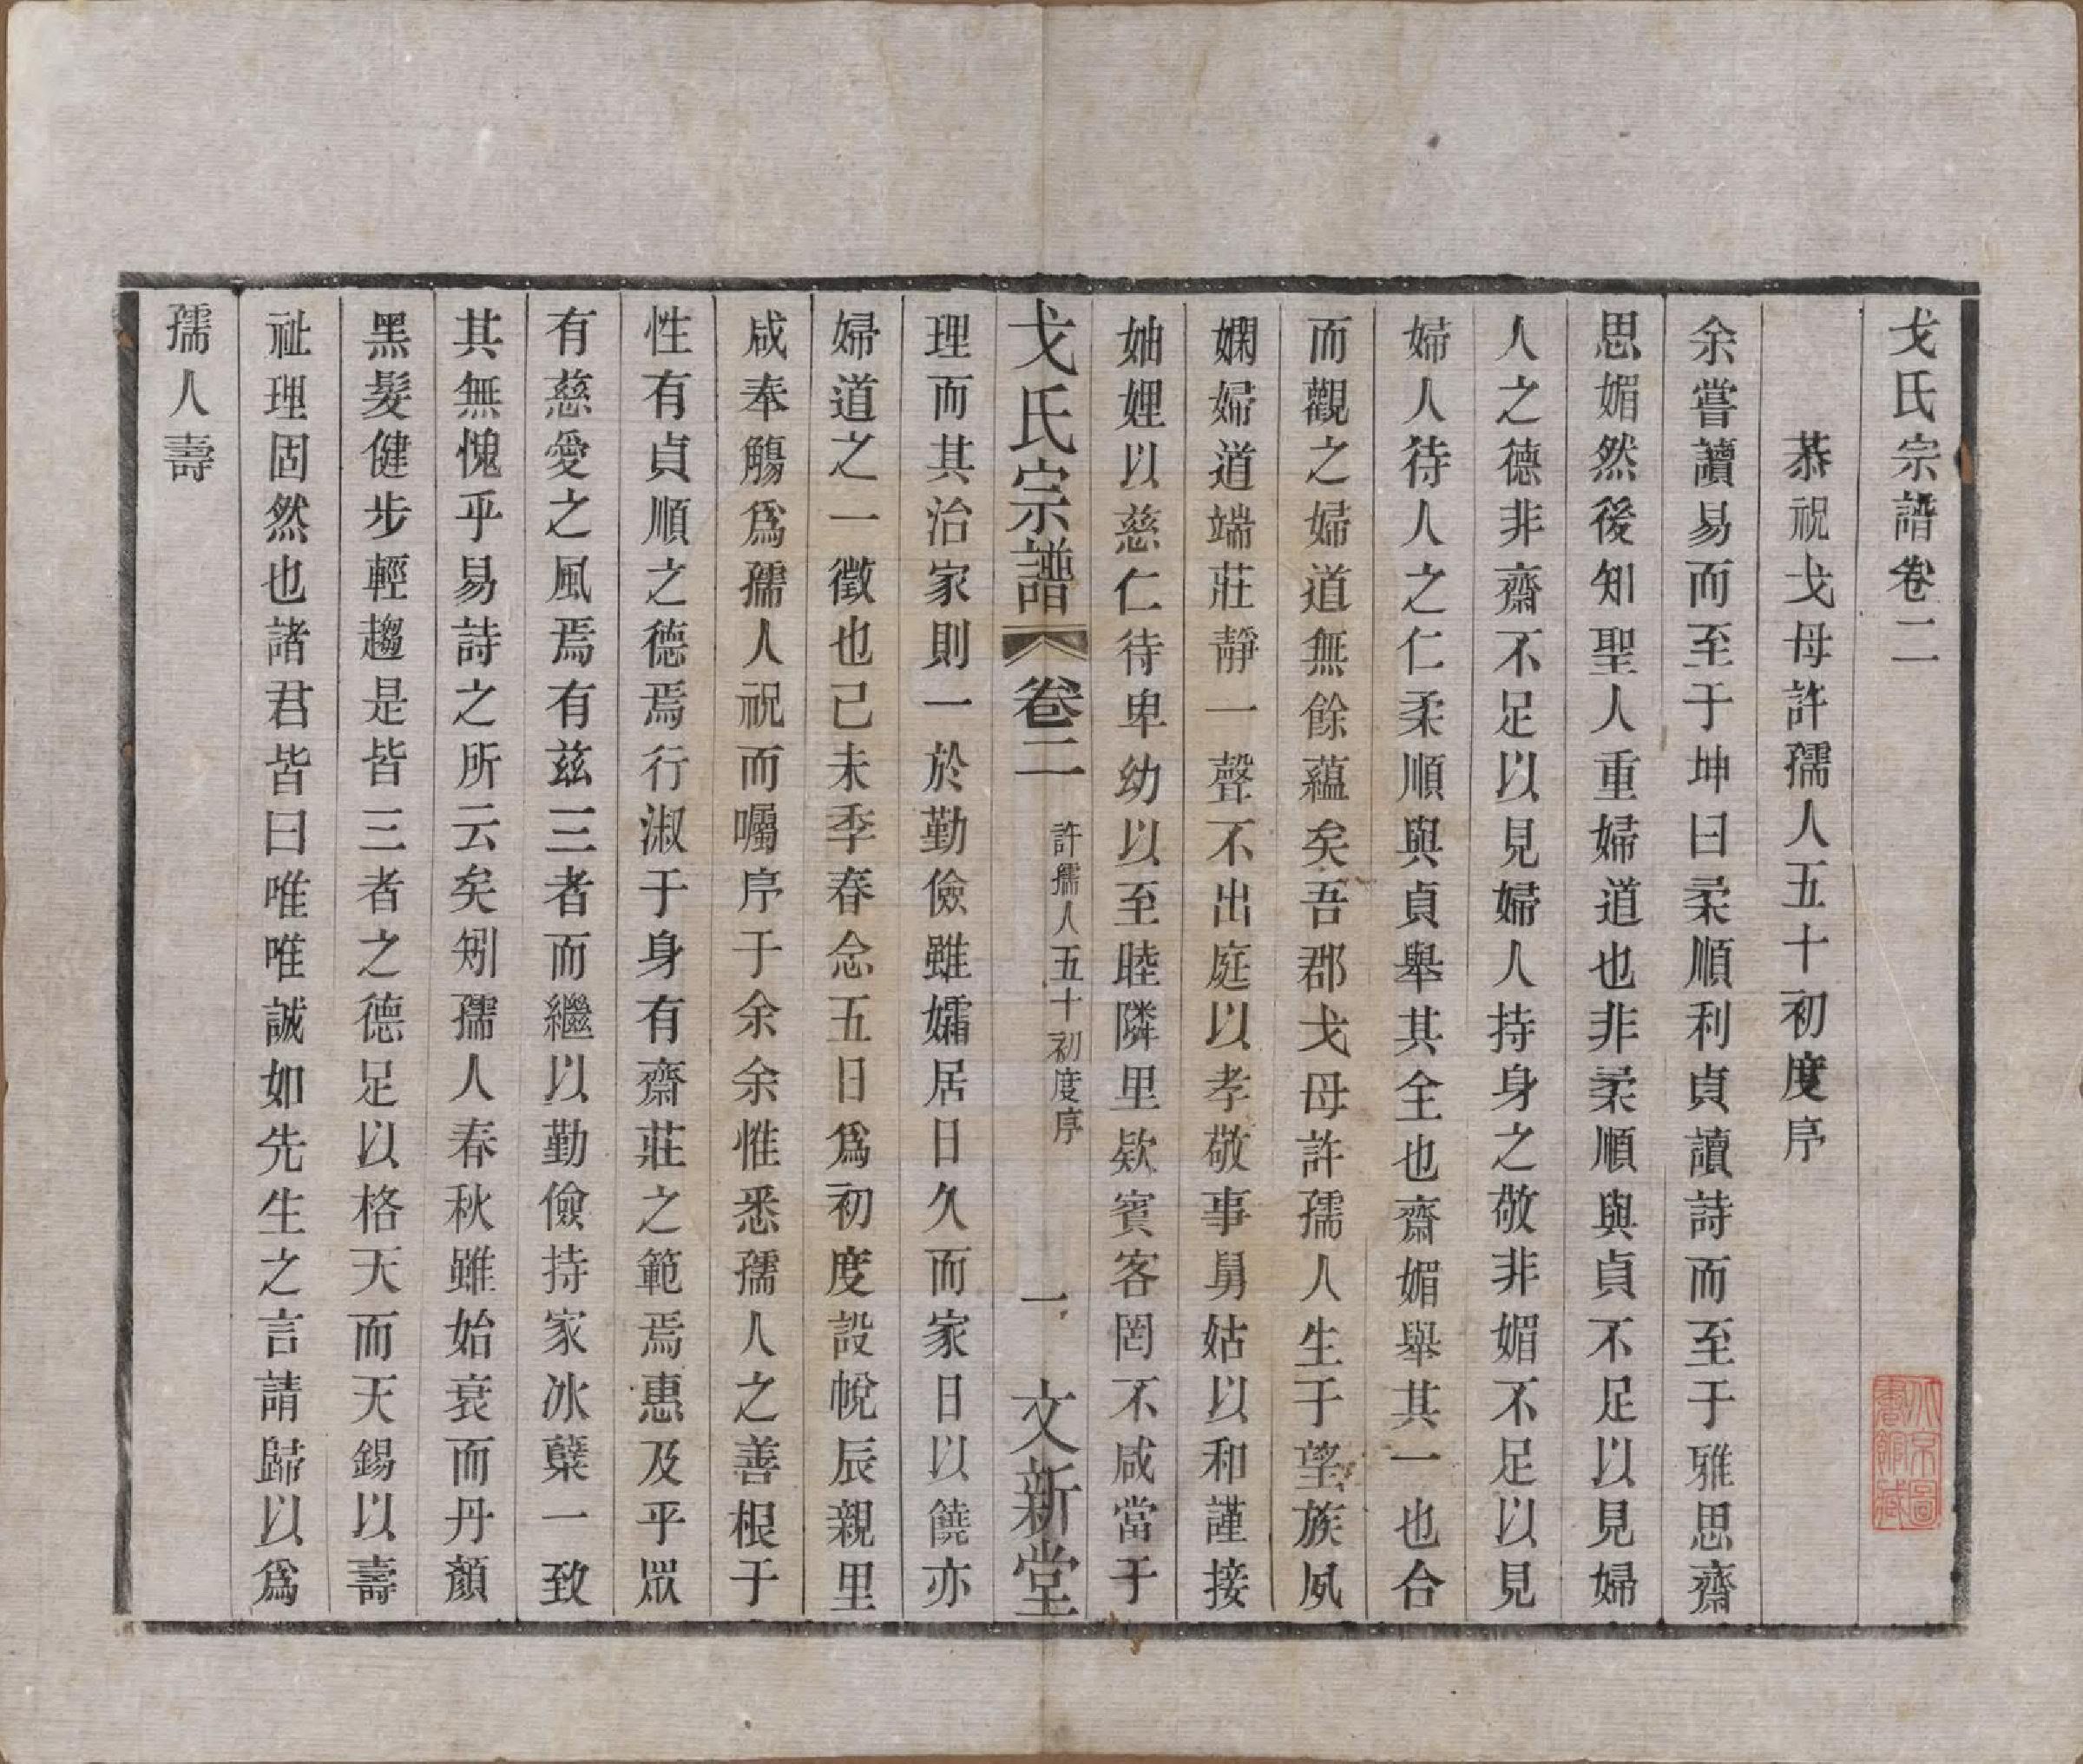 戈氏宗譜卷二
恭祝戈母許孺人五十初度序
余嘗讀易而至于坤曰柔順利貞讀詩而至于雅思齋
思媚然後知聖人重婦道也非柔順與貞不足以見婦
人之德非齋不足以見婦人持身之敬非媚不足以見
婦人待人之仁柔順與貞舉其全也齋媚舉其一也合
而觀之婦道無餘蘊矣吾郡戈母許孺人生于望族夙
嫻婦道端莊靜一聲不出庭以孝敬事舅姑以和謹接
妯娌以慈仁待卑幼以至睦隣里欵賓客罔不咸當于
戈氏宗譜 卷二 許孺人五十初度序 一 文新堂
理而其治家則一於勤儉雖孀居日久而家日以饒亦
婦道之一徵也己未季春念五日為初度設帨辰親里
咸奉觴為孺人祝而囑序于余余惟悉孺人之善根于
性有貞順之德焉行淑于身有齋莊之範焉惠及乎眾
有慈愛之風焉有茲三者而繼以勤儉持家冰蘖一致
其無愧乎易詩之所云矣矧孺人春秋雖始衰而丹顏
黑髮健步輕趨是皆三者之德足以格天而天錫以壽
祉理固然也諸君皆曰唯唯誠如先生之言請歸以為
孺人壽
北京圖書館藏